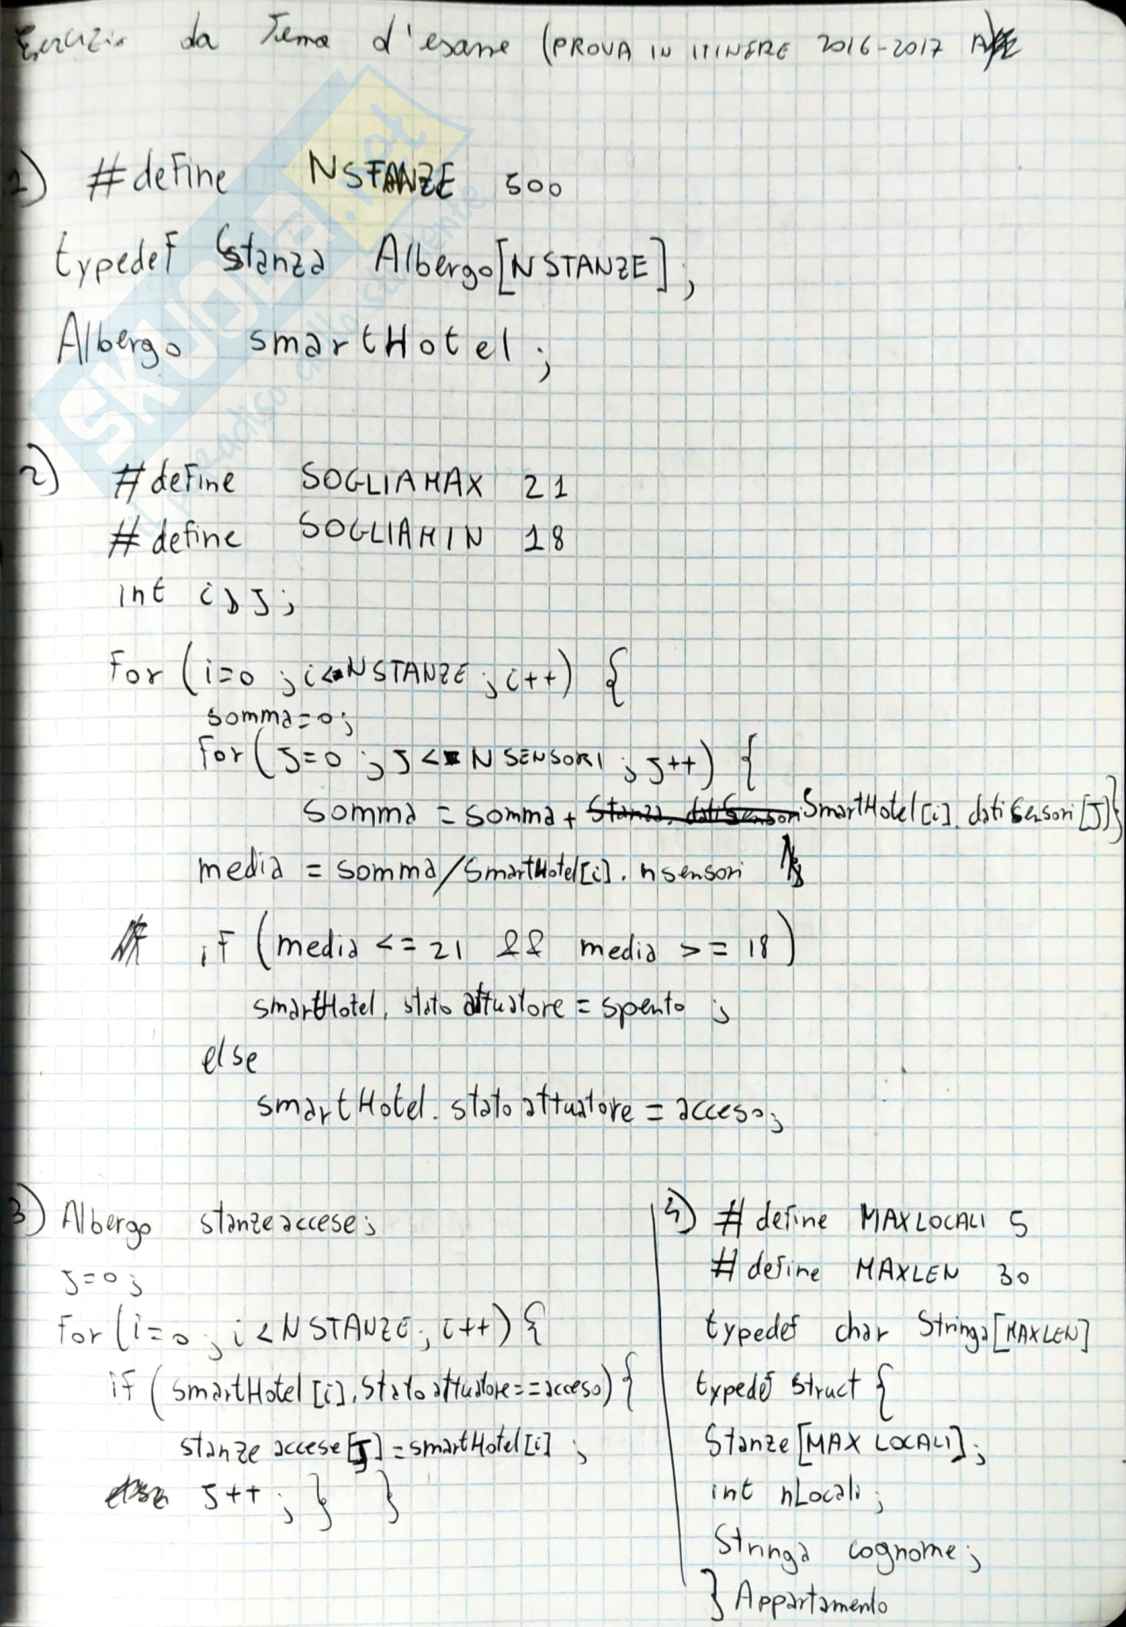 Esercizio da Tema d'esame (PROVA IN ITINERE 2016-2017
1) #define NSTANZE 500
typedef Stanza Albergo[NSTANZE];
Albergo smartHotel;
2) #define SOGLIAMAX 21
#define SOGLIAMIN 18
int i,j;
for (i=0 ; i<NSTANZE ; i++) {
somma=0;
for (j=0 ; j< NSENSORI ; j++) {
somma = somma + SmartHotel[i].datiSensori[J]}
media = somma/SmartHotel[i].nsensori
if (media <= 21 && media >= 18)
smartHotel.stato attuatore = spento ;
else
smartHotel.stato attuatore = acceso;
3) Albergo stanze accese;
j=0;
for (i=0 ; i<NSTANZE ; i++) {
if (smartHotel[i].stato attuatore==acceso) {
stanze accese[J]=smartHotel[i] ;
j++ ; } }
4) #define MAXLOCALI 5
#define MAXLEN 30
typedef char Stringa[MAXLEN]
typedef struct {
Stanze[MAX LOCALI];
int nLocali;
Stringa cognome;
} Appartamento
SKUOLA.net
il paradiso dello studente